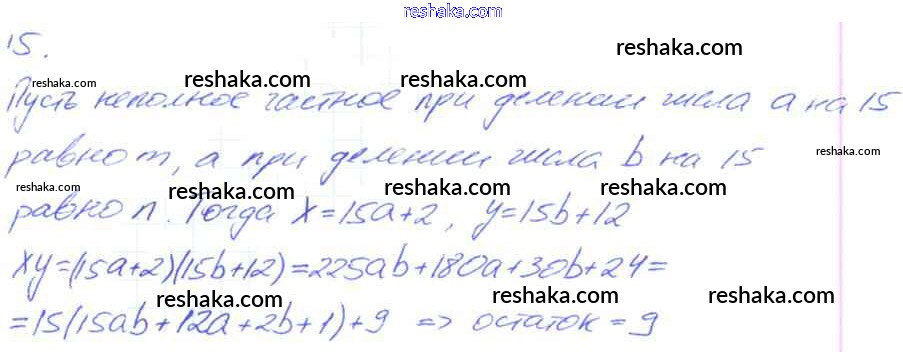 reshaka.com
15.
reshaka.com
reshaka.com reshaka.com reshaka.com reshaka.com
Пусть неполное частное при делении числа a на 15
равно m, а при делении числа b на 15
reshaka.com
reshaka.com reshaka.com reshaka.com reshaka.com
равно n. Тогда x=15a+2, y=15b+12
xy=(15a+2)(15b+12)=225ab+180a+30b+24=
reshaka.com reshaka.com reshaka.com
=15(15ab+12a+2b+1)+9 => остаток=9